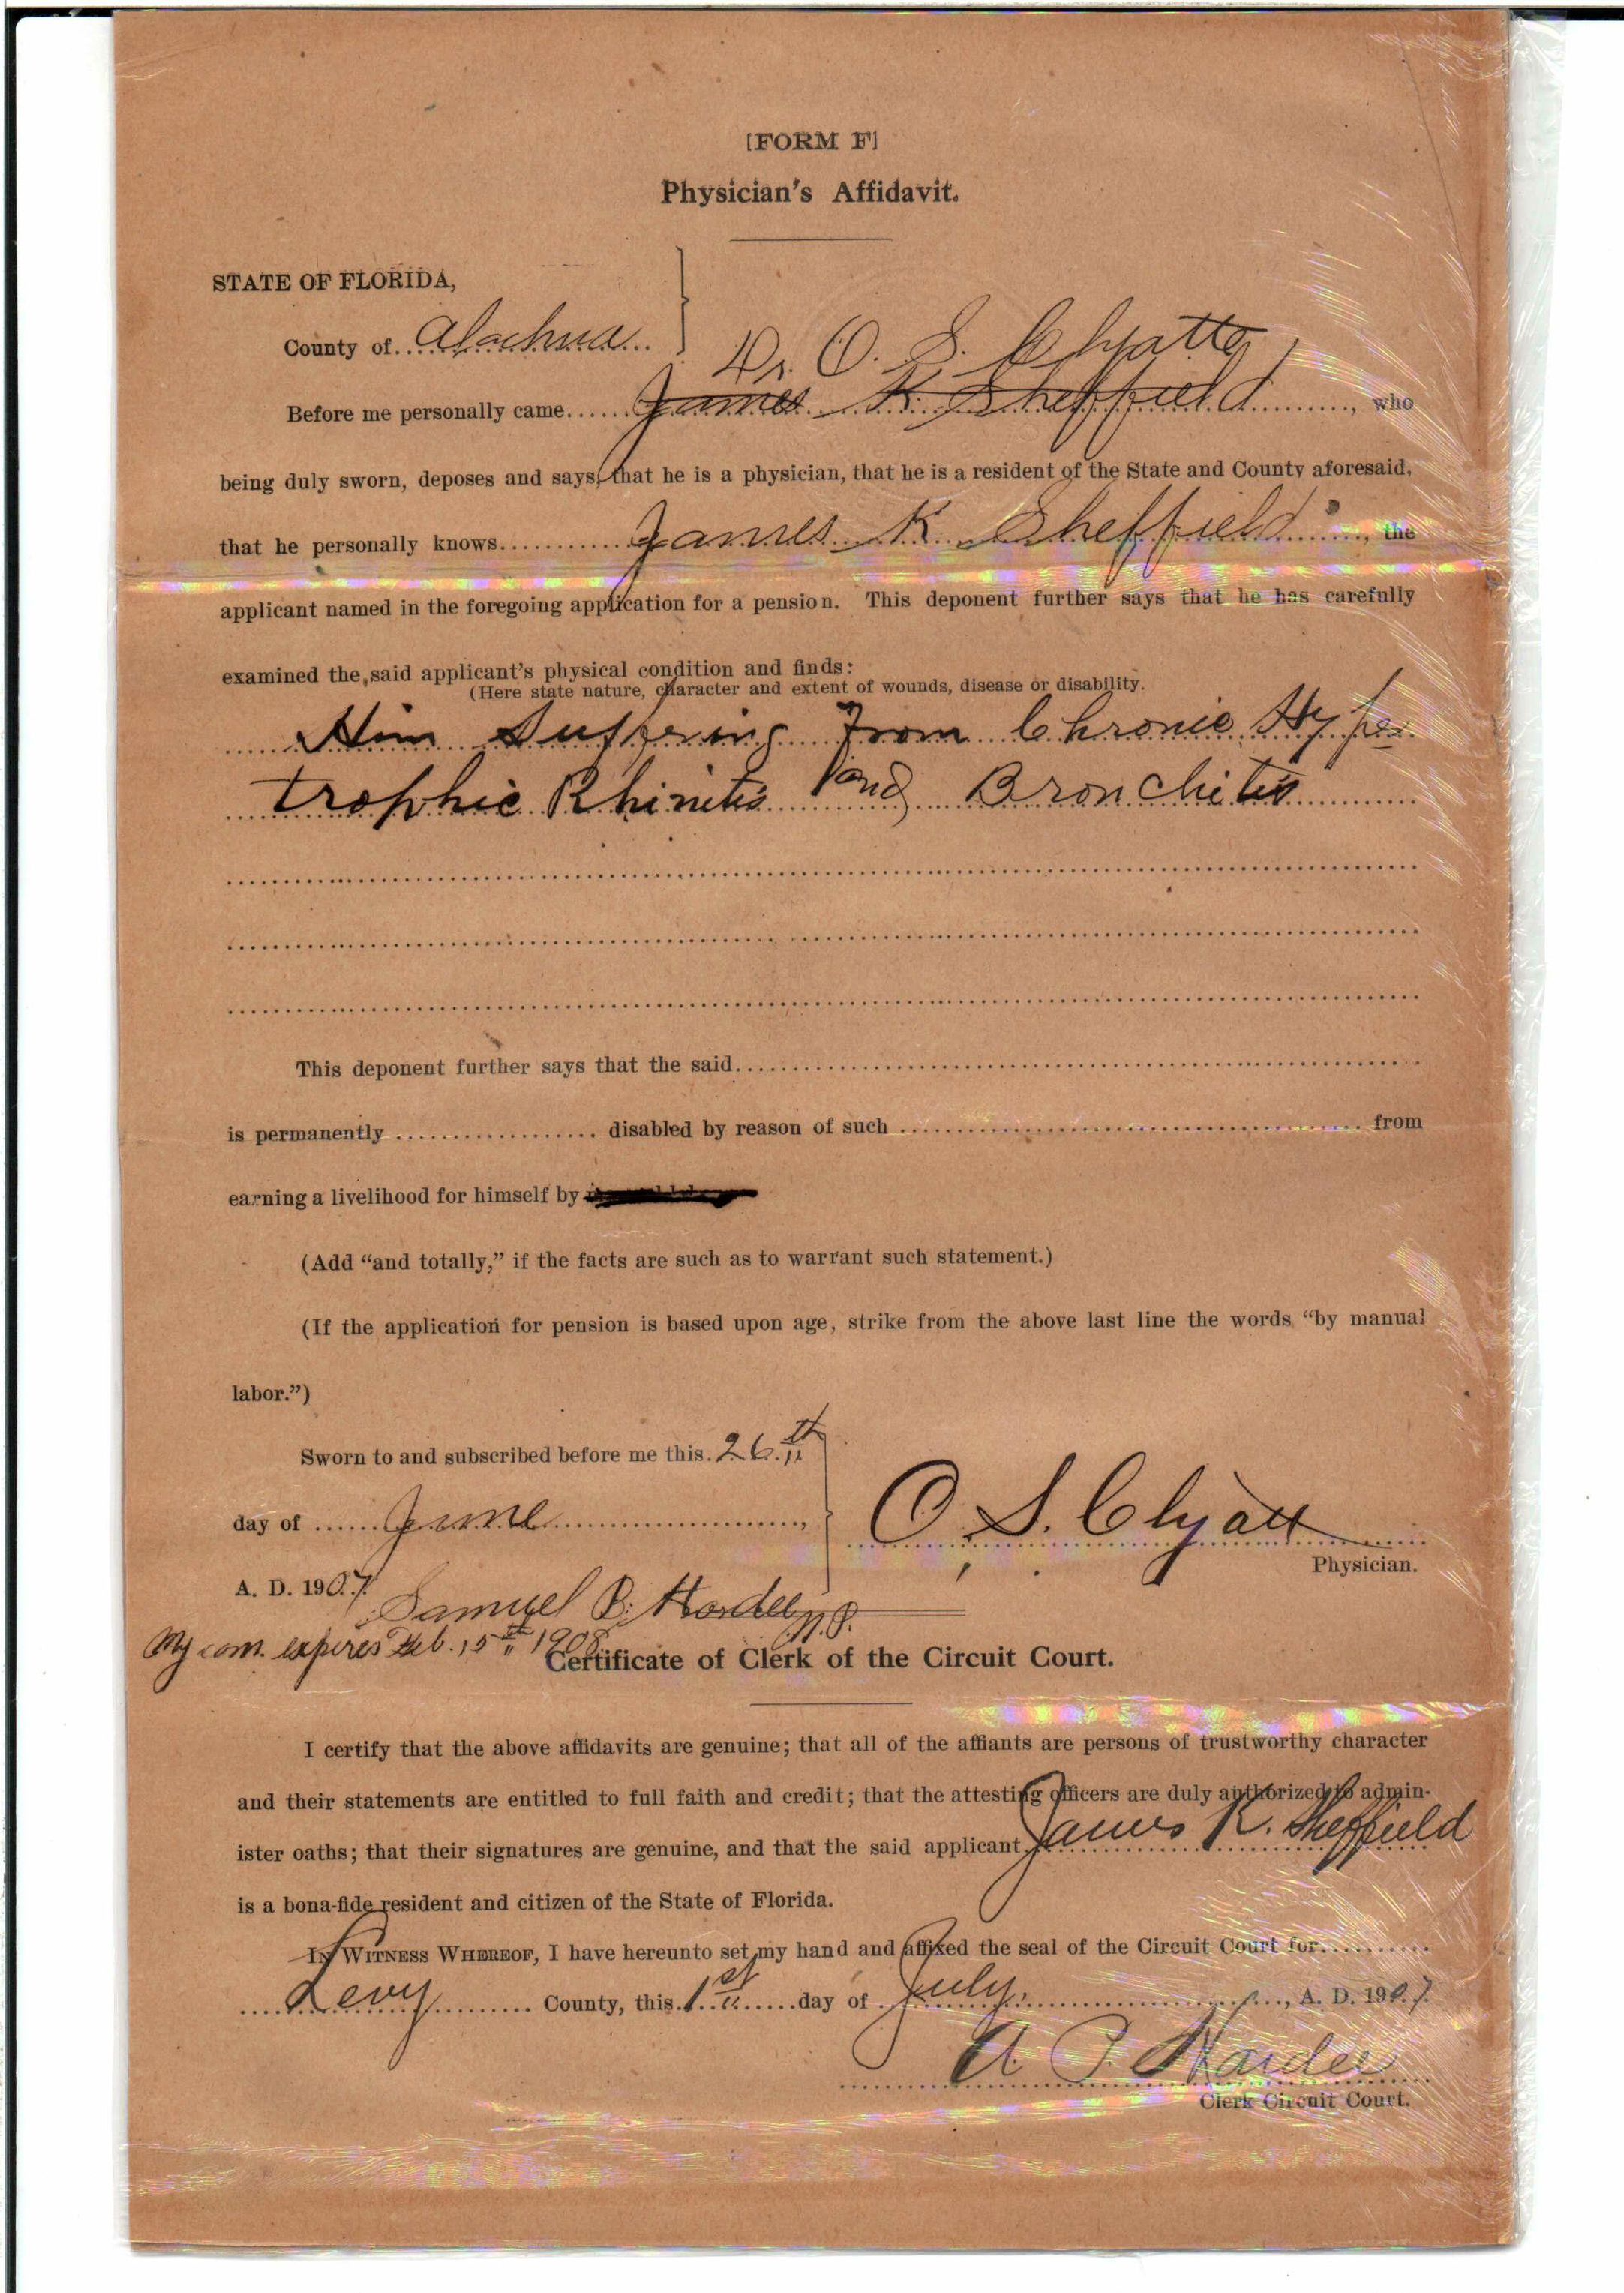 [FORM F]
Physician's Affidavit.
STATE OF FLORIDA,
County of Alachua
Dr. O. S. Clyatte
Before me personally came James K. Sheffield, who
being duly sworn, deposes and says, that he is a physician, that he is a resident of the State and County aforesaid,
that he personally knows James K Sheffield, the
applicant named in the foregoing application for a pension. This deponent further says that he has carefully
examined the said applicant's physical condition and finds:
(Here state nature, character and extent of wounds, disease or disability.
Him Suffering From Chronic Hyper
trophic Rhinitis and Bronchitis
This deponent further says that the said
is permanently disabled by reason of such from
earning a livelihood for himself by
(Add "and totally," if the facts are such as to warrant such statement.)
(If the application for pension is based upon age, strike from the above last line the words "by manual
labor.")
Sworn to and subscribed before me this 26th
day of June,
O. S. Clyatt
Physician.
A. D. 1907.
Samuel B. Hardee N.P.
My com. expires Feb. 15th 1908
Certificate of Clerk of the Circuit Court.
I certify that the above affidavits are genuine; that all of the affiants are persons of trustworthy character
and their statements are entitled to full faith and credit; that the attesting officers are duly authorized to admin-
ister oaths; that their signatures are genuine, and that the said applicant James K. Sheffield
is a bona-fide resident and citizen of the State of Florida.
IN WITNESS WHEREOF, I have hereunto set my hand and affixed the seal of the Circuit Court for
Levy County, this 1st day of July, A. D. 1907.
A. P. Hardee
Clerk Circuit Court.